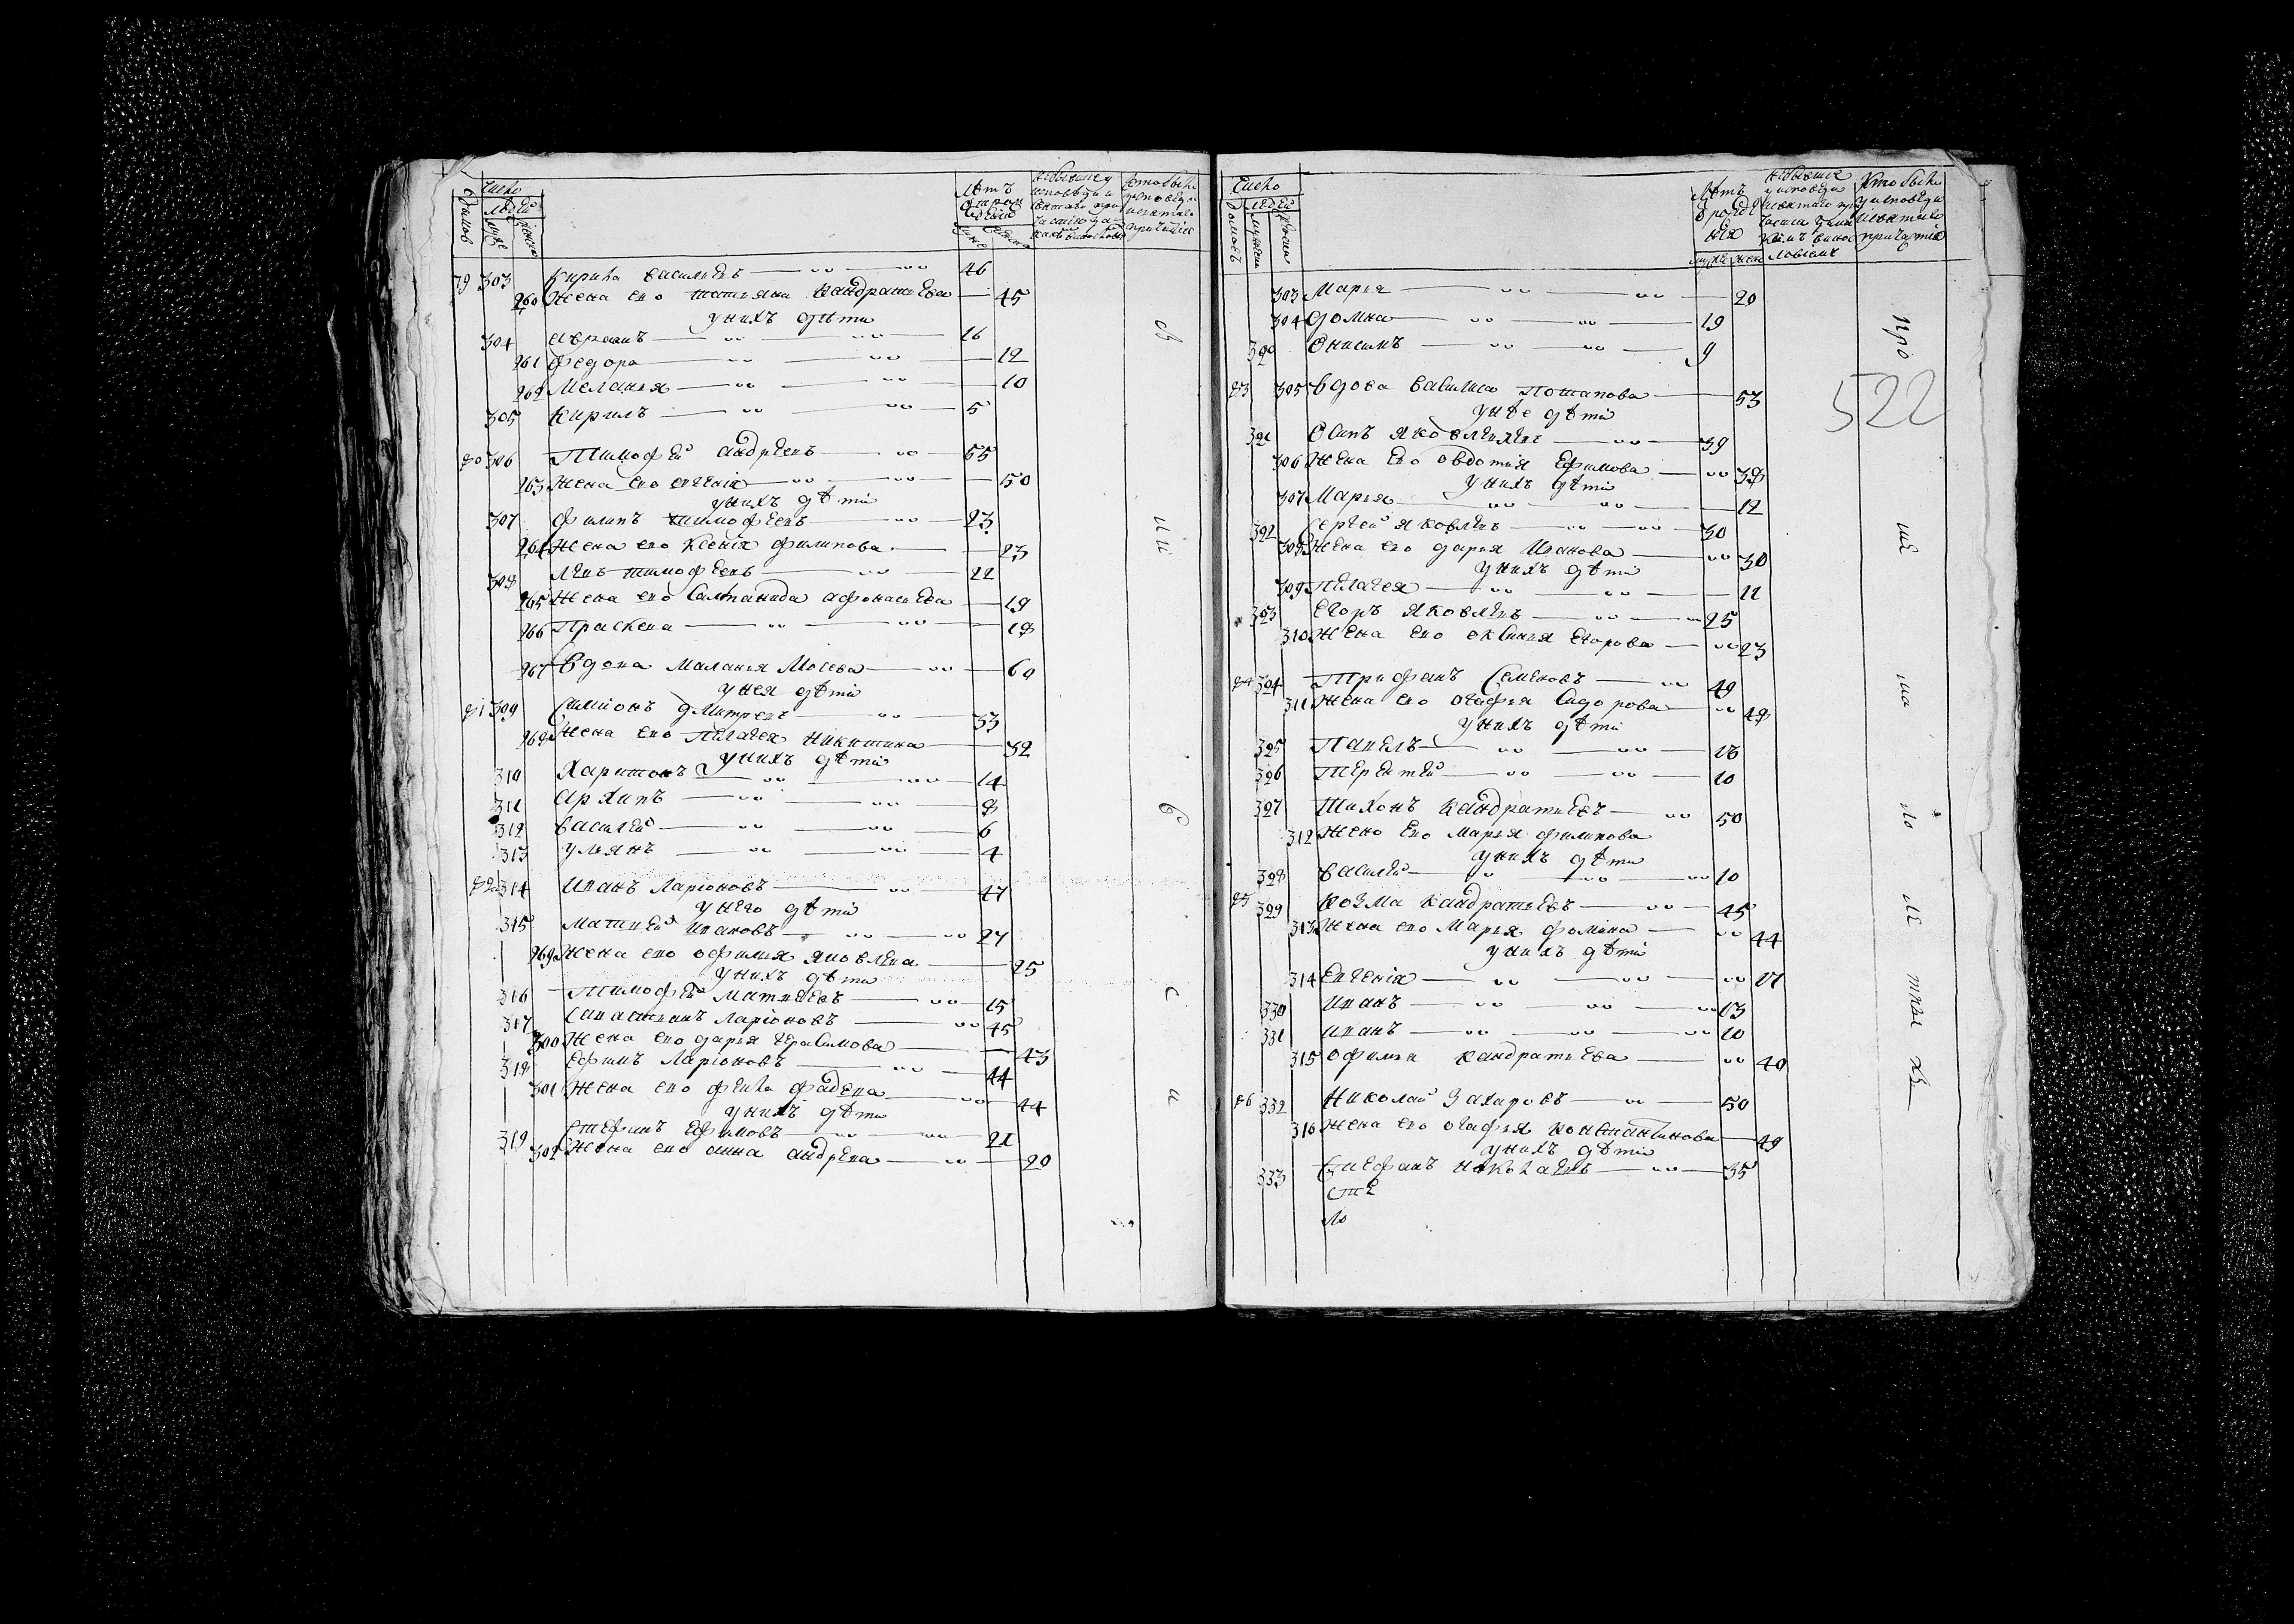 Число
Людей
Домов
79 303 Кирила Васильевъ 46
260 Жена ево Татьяна Кандратьева 45
у нихъ дѣти
304 Авраамъ 16
261 Федора 12
262 Меланья 10
305 Кирилъ 5
80 306 Тимофей Андреевъ 55
263 Жена ево Евгенія 50
у нихъ дѣти
307 Филипъ Тимофеевъ 23
264 Жена ево Ксенія Филипова 23
308 Левъ Тимофеевъ 22
265 Жена ево афонасьева 19
266 Праскева 18
267 Вдова Маланья Мосева 60
у нея дѣти
81 309 Симионъ Дмитревъ 33
268 Жена ево Пелагея Никитина 32
у нихъ дѣти
310 Харитонъ 14
311 Архипъ 8
312 Василей 6
313 Ульянъ 4
82 314 Иванъ Ларіоновъ 47
у него дѣти
315 Матвей Ивановъ 27
269 Жена ево Офимья Яковлева 25
у нихъ дѣти
316 Тимофей Матвеевъ 15
317 Савастьянъ Ларіоновъ 45
300 Жена ево Дарья Герасимова 43
318 Ефимъ Ларіоновъ 44
301 Жена ево Фекла Фадеева 44
у нихъ дѣти
319 Стефанъ Ефимовъ 21
302 Жена ево Анна Андрева 20
Число
Людей
Домовъ
303 Марья 20
304 Домна 19
320 Онисимъ 9
83 305 Вдова Василиса Потапова 53
у нѣе дѣти
321 Осипъ Яковлевичь 39
306 Жена Ево Овдотия Ефимова 38
у нихъ дѣти
307 Марья 12
322 Сергей Яковлевъ 30
308 Жена его Дарья Иванова 30
у нихъ дѣти
309 Пелагея 11
323 Егоръ Яковлевъ 25
310 Жена ево Оксинья Егорова 23
84 324 Трифанъ Семеновъ 49
311 Жена ево Огафья Сидорова 48
у нихъ дѣти
325 Павелъ 18
326 Терентей 10
327 Тихонъ Кандратьевъ 50
312 Жена Ево Марья Филипова
у нихъ дѣти
328 Василей 10
85 329 Козма Кандратьевъ 45
313 Жена ево Марья Фомина 44
у нихъ дѣти
314 Евгенія 17
330 Иванъ 13
331 Иванъ 10
315 Офимья Кандратьева 40
86 332 Николай Захаровъ 50
316 Жена ево Огафья Констянтинова 49
у нихъ дѣти
333 Стефанъ Николаевъ 35
сте
ло
522